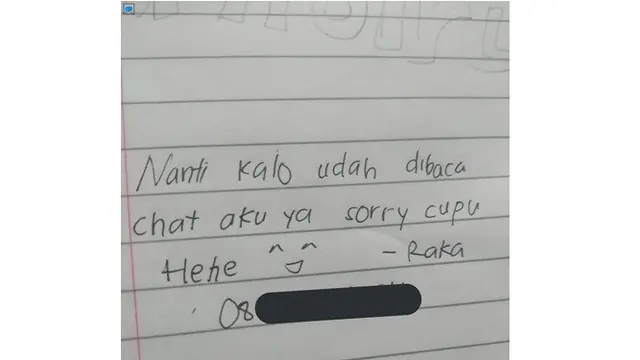 Nanti kalo udah dibaca
chat aku ya sorry cupu
Hehe
- Raka
08